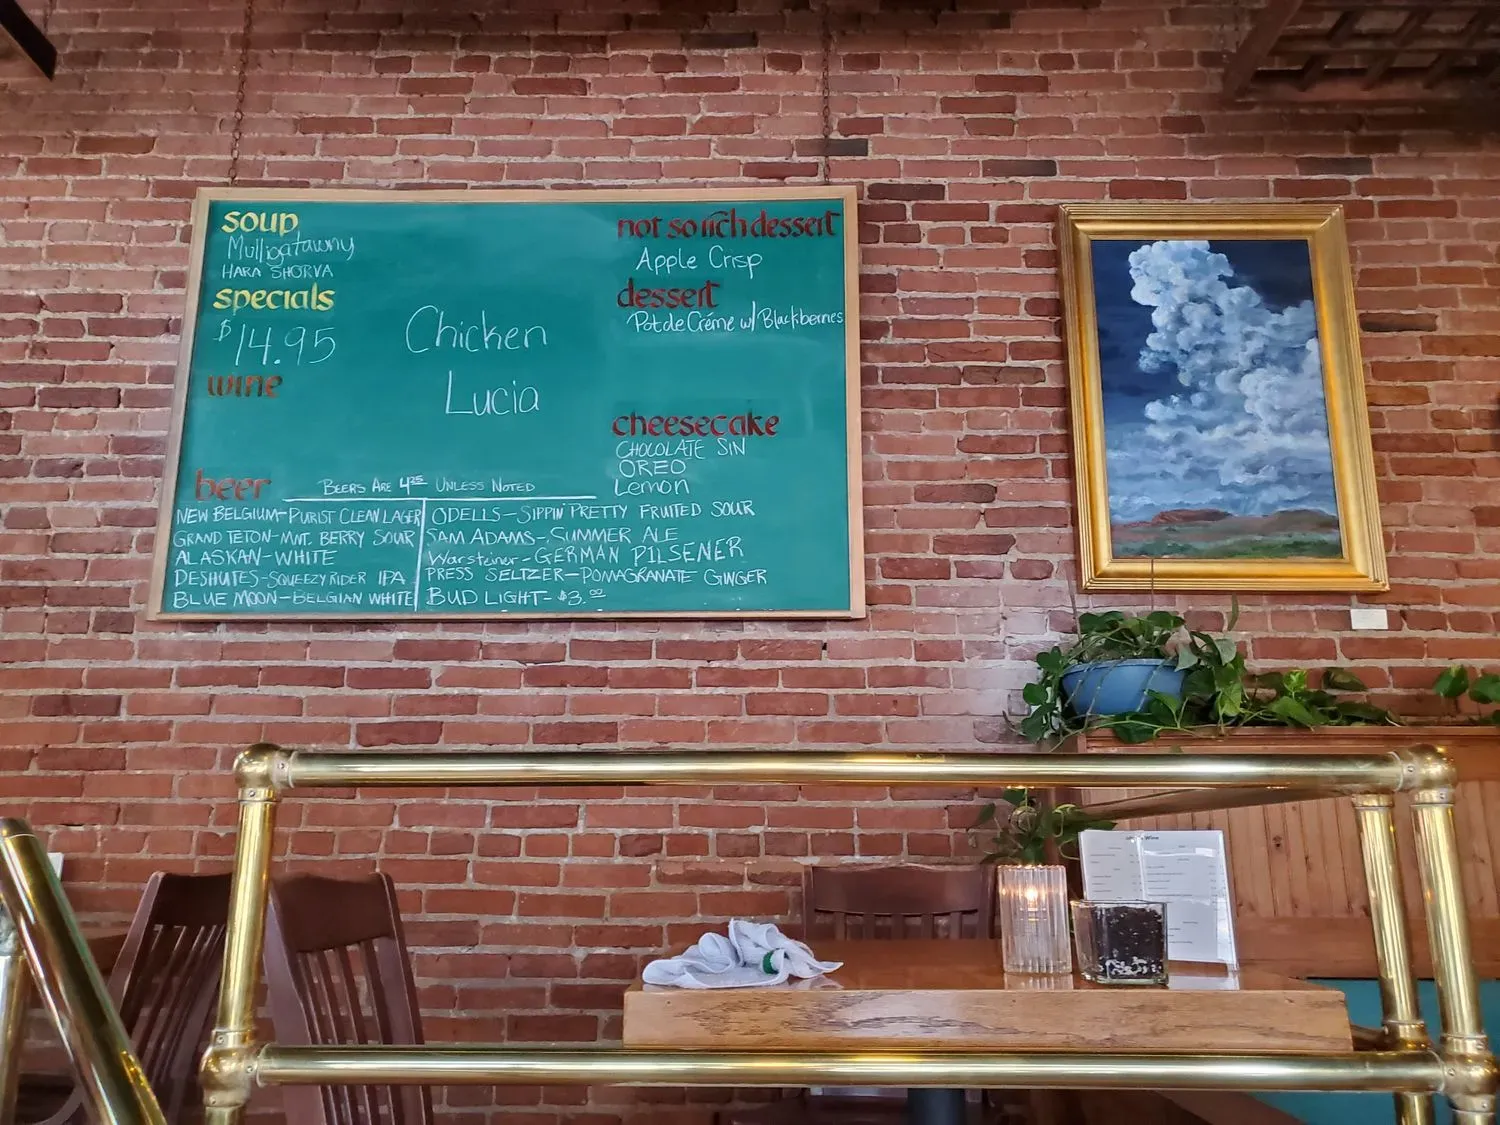 soup
Mulligatawny
HARA SHORVA
specials
$14.95
Chicken
Lucia
wine
not so rich dessert
Apple Crisp
dessert
Pot de Créme w/ Blackberries
cheesecake
CHOCOLATE SIN
OREO
Lemon
beer
BEERS ARE 4.25 UNLESS NOTED
NEW BELGIUM-PURIST CLEAN LAGER
GRAND TETON-MNT. BERRY SOUR
ALASKAN-WHITE
DESHUTES-SQUEEZY RIDER IPA
BLUE MOON-BELGIAN WHITE
ODELLS-SIPPIN' PRETTY FRUITED SOUR
SAM ADAMS-SUMMER ALE
Warsteiner-GERMAN PILSENER
PRESS SELTZER-POMAGRANATE GINGER
BUD LIGHT-$3.00
Wine